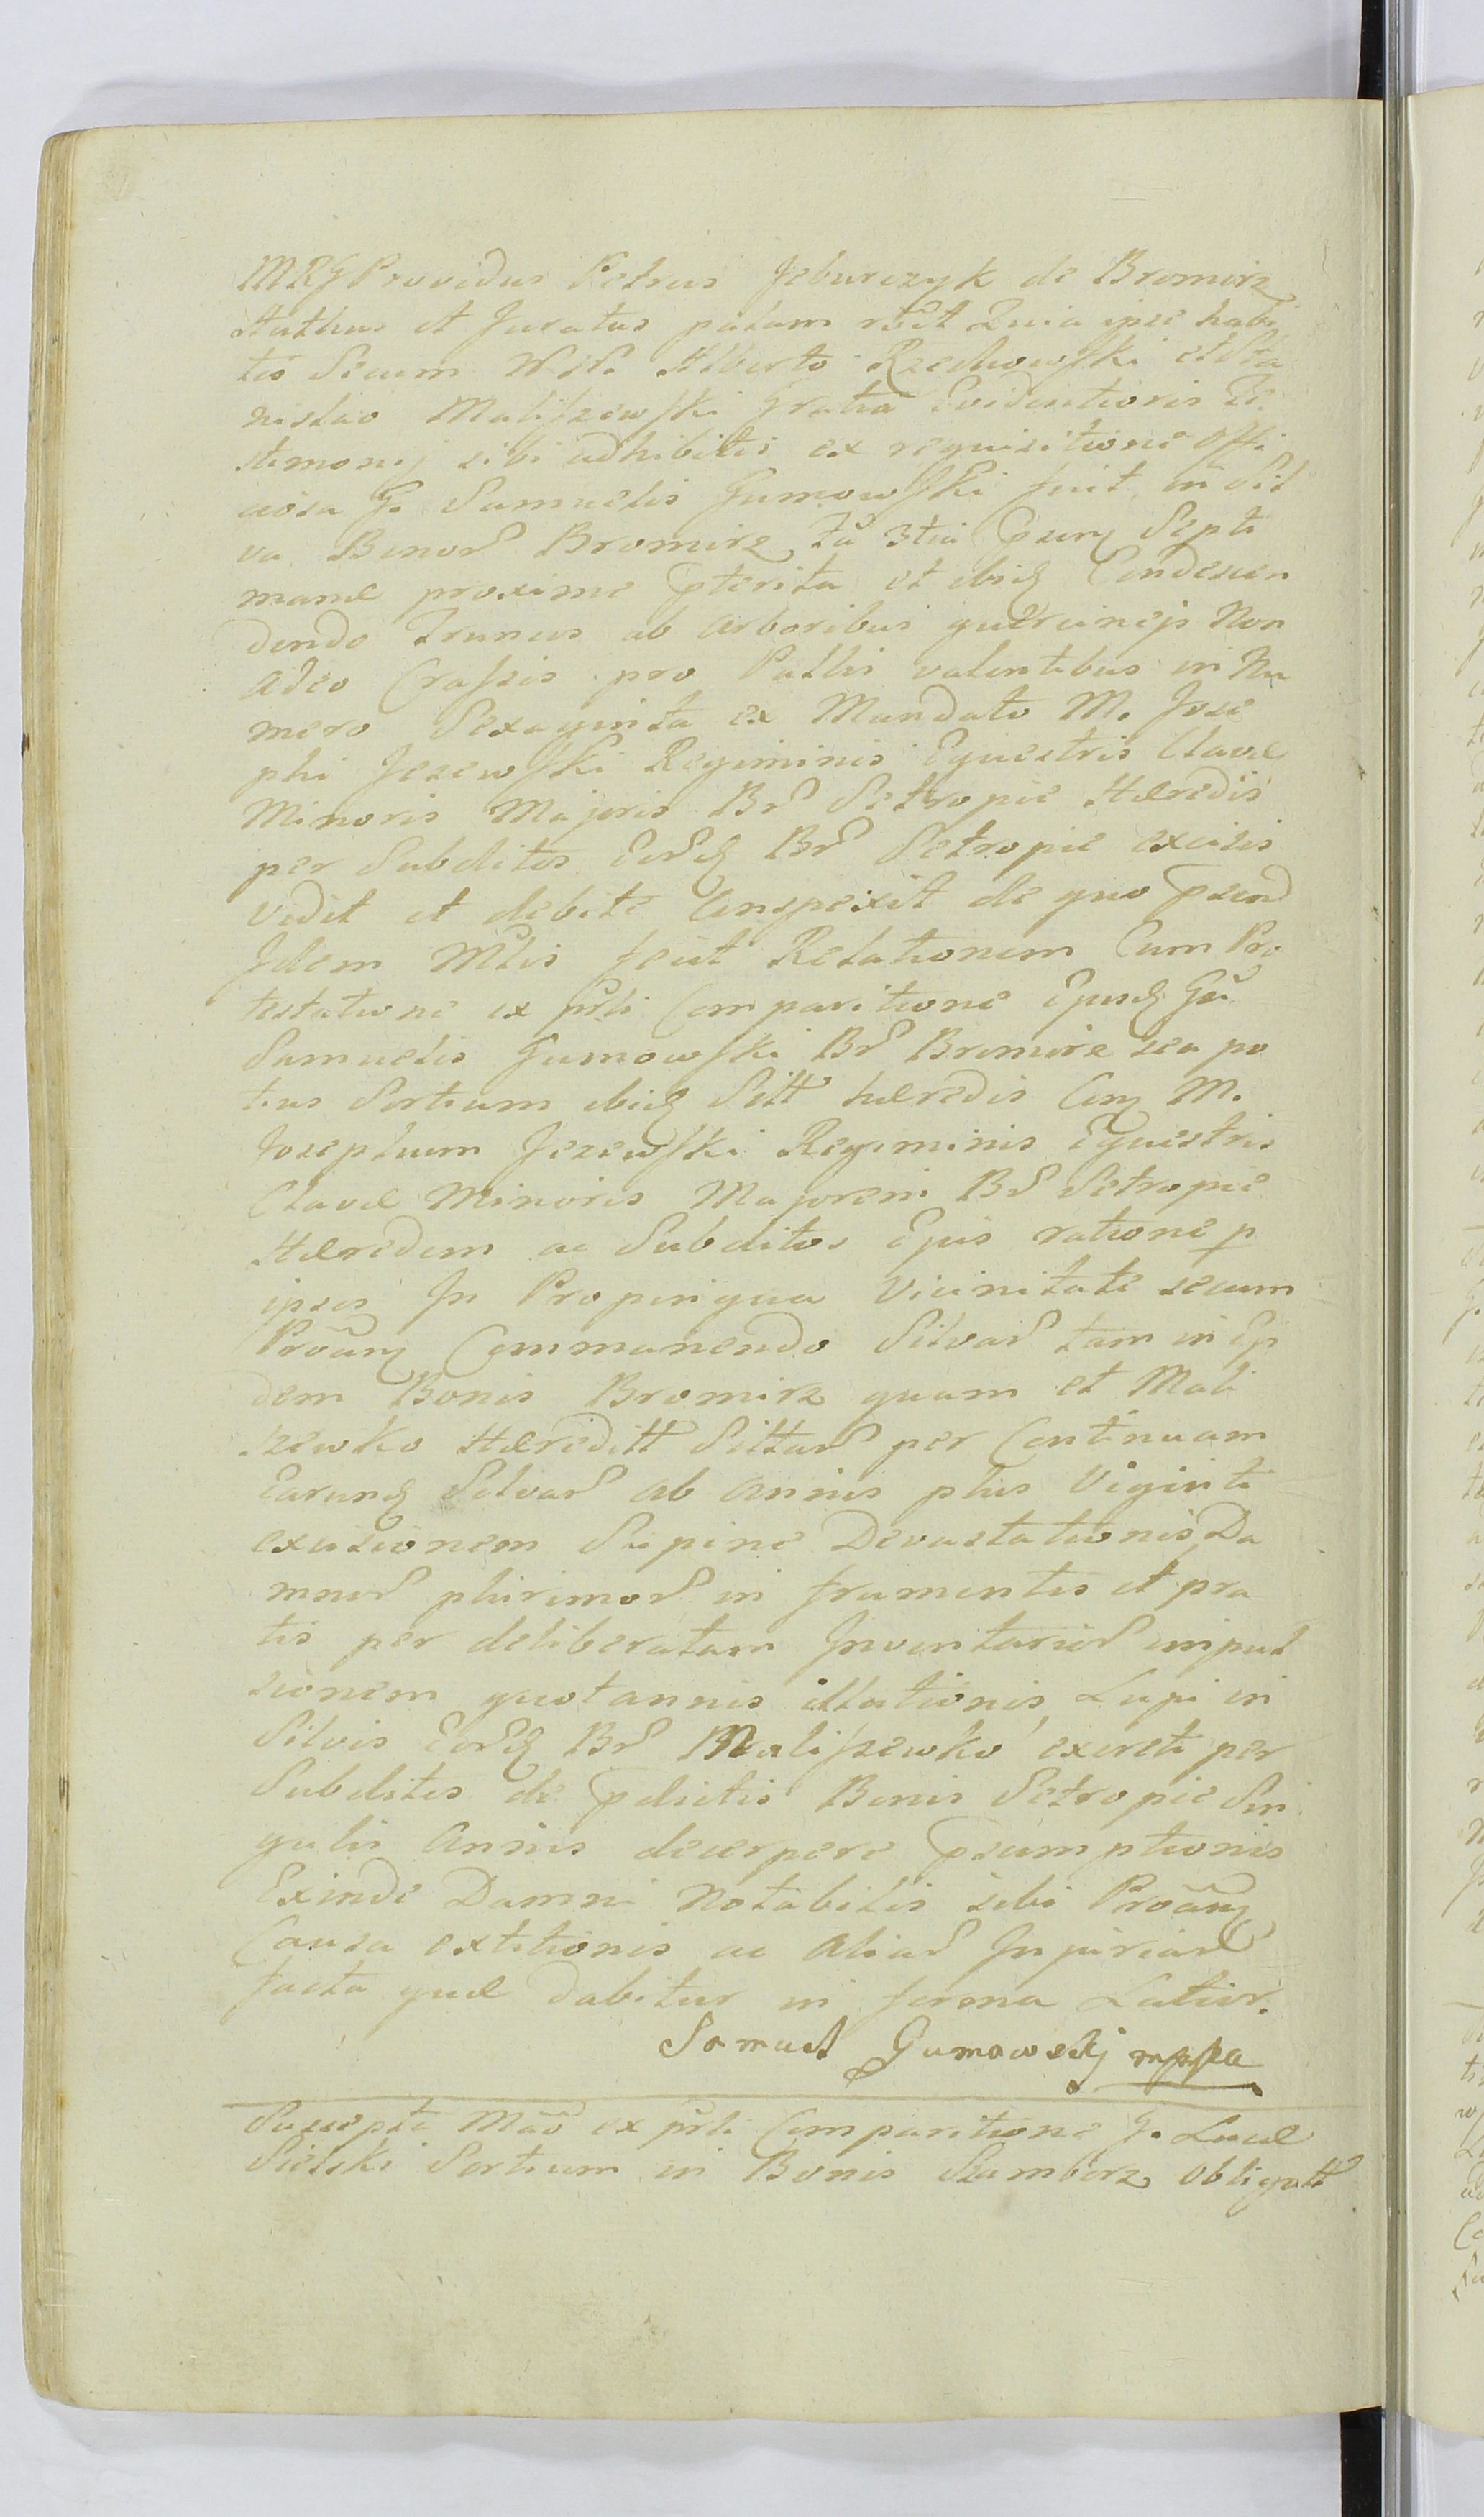 MRG Providus Petrus Jeburczyk de Bromirz
Authus et Juratus palam rcêt Quia ipse habi
tis Secum NN. Alberto Rzechowski et Sta
nislao Maliszewski Gratia Evidentioris Te
stimonij sibi adhibitis ex requisitione Offi
ciosa G. Samuelis Gumowski fuit in Sil
va Bonor Bromirz, ta 3tia psnq Septi
manæ proxime pterita et ibiq Condescen
dendo Truncus ab arboribus quercineis Non
adeo Crassis pro Pallis valentibus in Nu
mero Sexaginta ex Mandato M. Jose
phi Jezewski Regiminis Equestris Clavæ
Minoris Majoris Br Setropie Hæredis
per Subditos Eorq Br Setropie excisis
vidit et debite Conspexit de quo psend
Idem Mtlis fecit Relationem Cum Pro
testatione ex prli Comparitione Ejusq Gsi
Samuelis Gumowski Br Bromirz seu po
tius Sortium ibiq Sitt hæredis Cnq M.
Josephum Jezewski Regiminis Equestris
Clavæ Minoris Majorem Br Setropie
Hæredem ac Subditos Ejus ratione p
ipsos In Propinqua Vicinitate secum
Proanq Commanendo Silvar tam in Ej
dem Bonis Bromirz quam et Mali
szewko Hæreditt Sittar per Continuam
Earunq Silvar ab annis plus Viginti
excisionem Supine Devastationis, Da
mnor plurimor in frumentis et pra
tis per deliberatam Inventarior impul
sionem quotannis illationis, Lupi in
Silvis Eorq Br Maliszewko excreti per
Subditos de pdictis Bonis Setropie Sin
gulis Annis decerpere psumptionis
Exinde Damni Notabilis sibi Proanq
Causa extitionis ac aliar Injuriar
facta quæ dabitur in forma Latior.
Samuel Gumowskj mppa
Suscepta Mão ex prli Comparitione G. Lucæ
Sielski Sortium in Bonis Szumborz obligatt